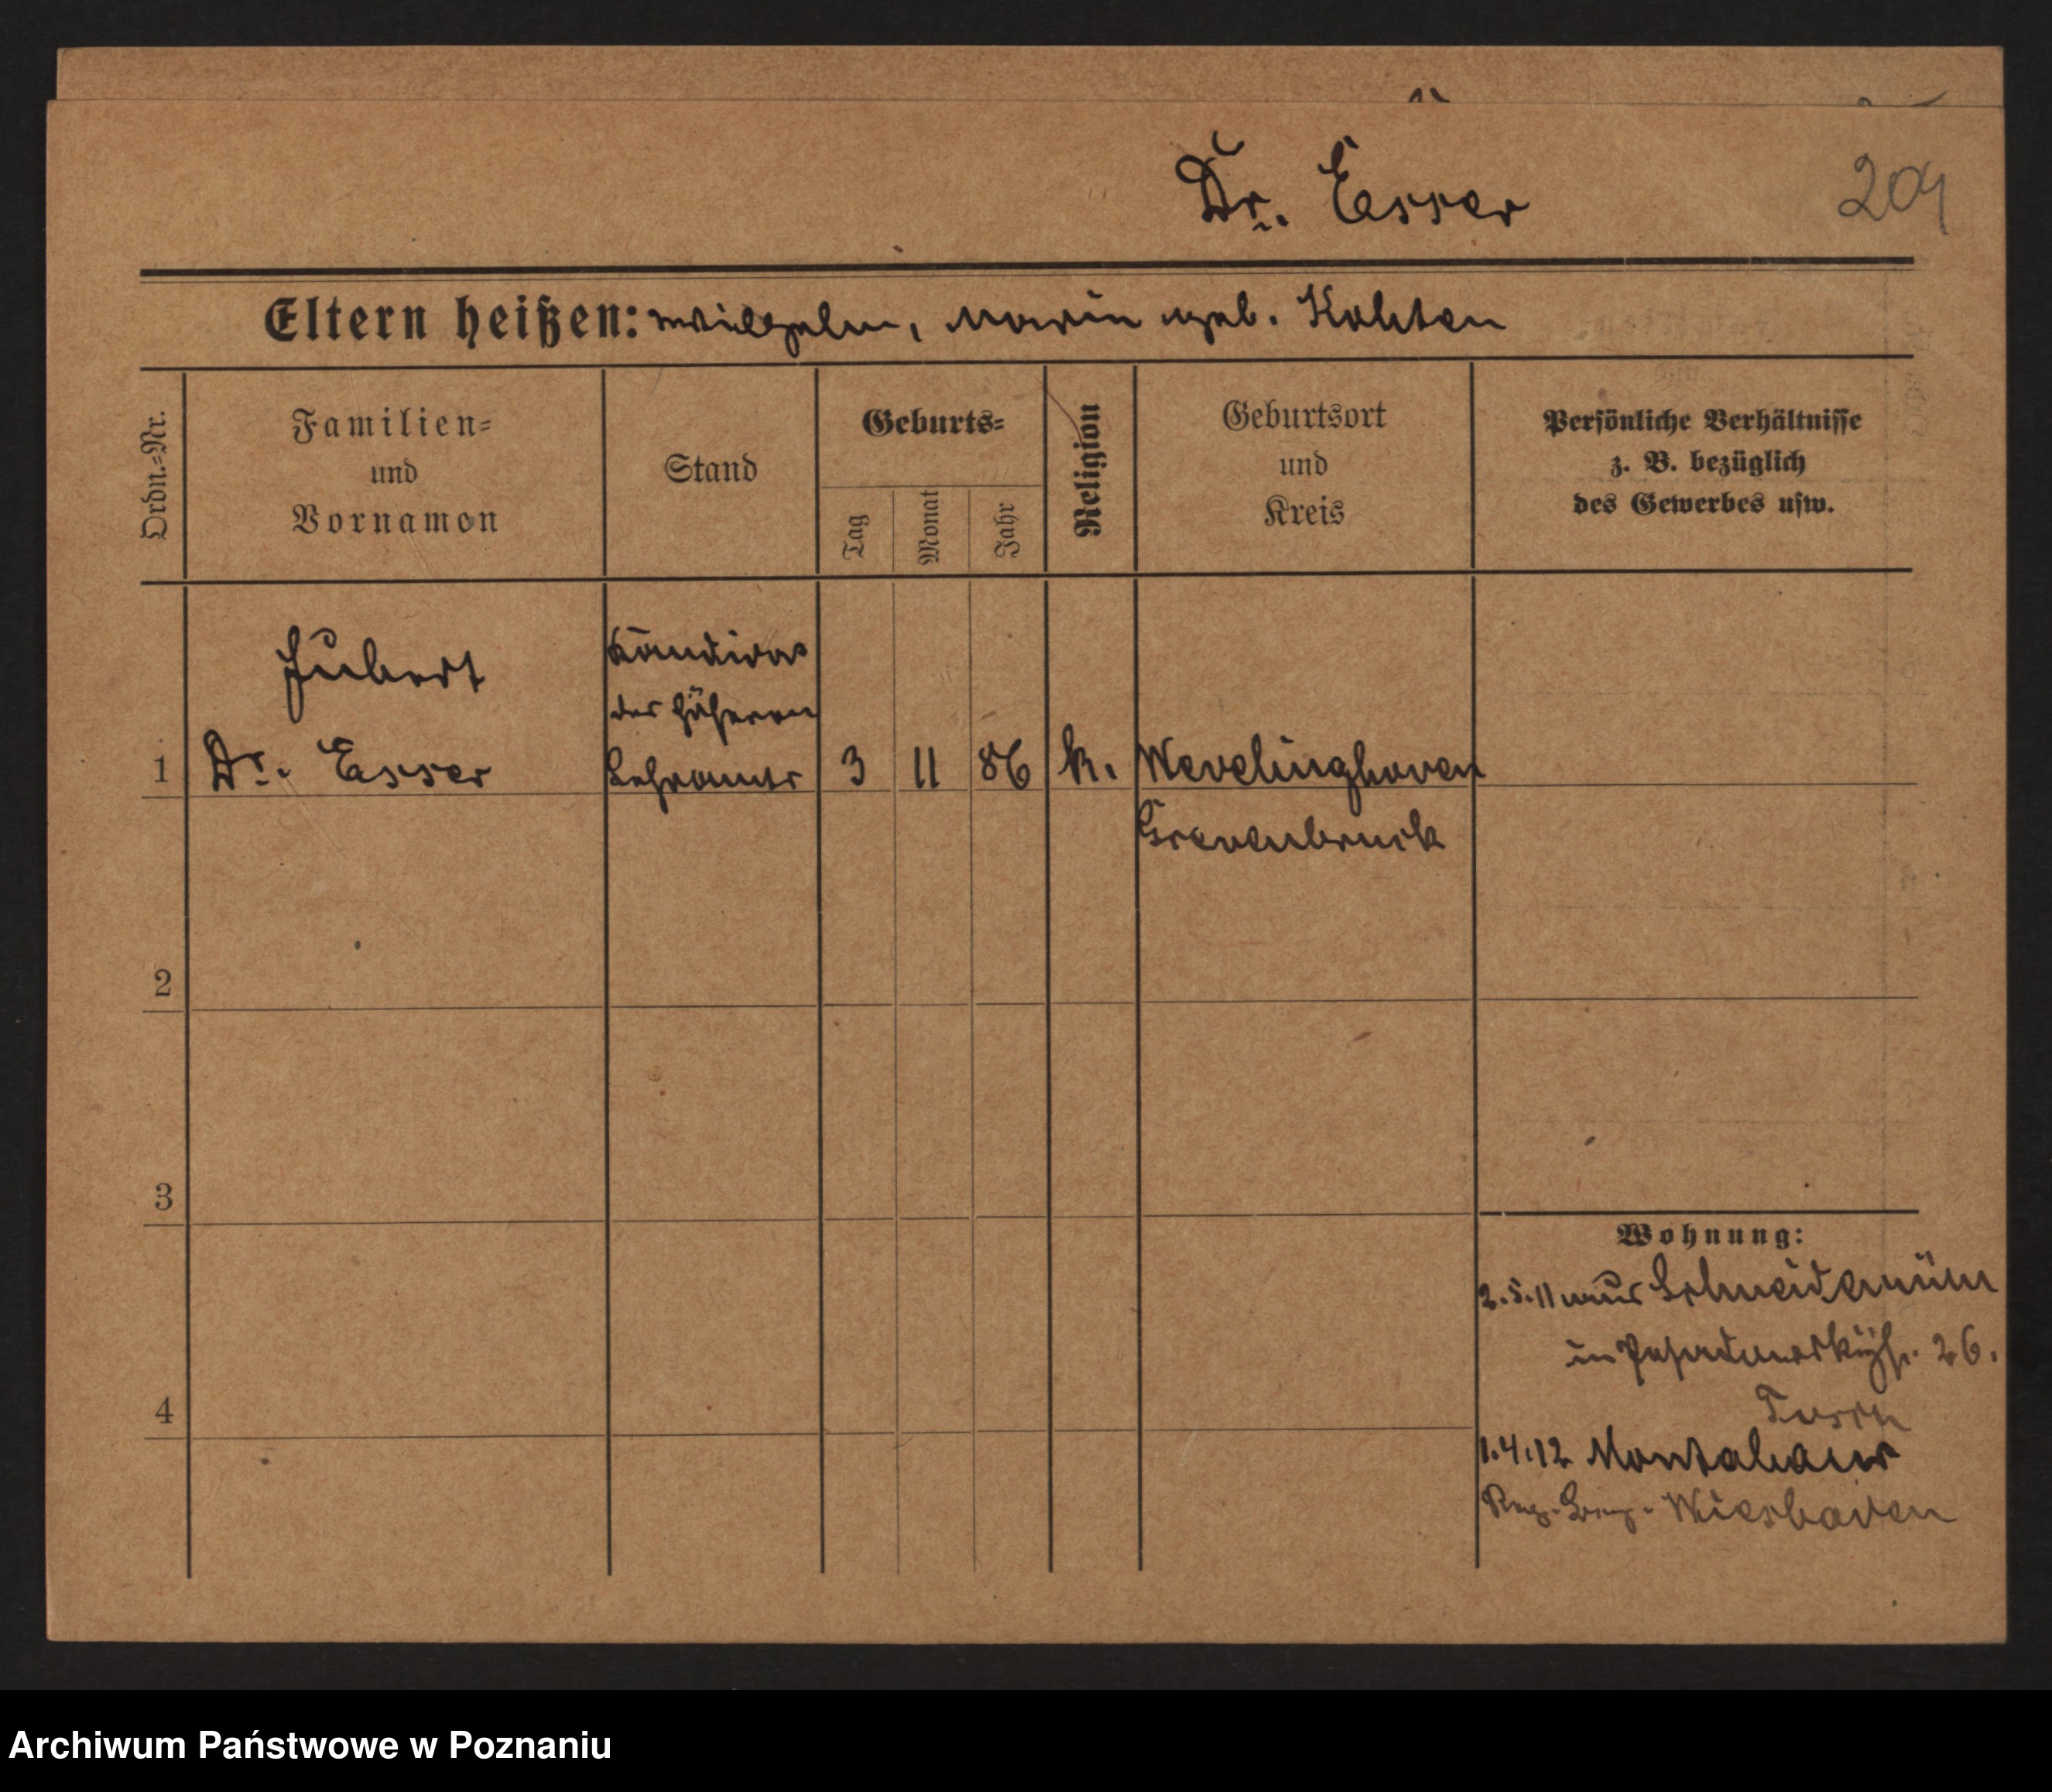 Dr. Esser
209
Eltern heißen: Wilhelm, Maria geb. Kohten
Ordn.-Nr.
Familien-
und
Vornamen
Stand
Geburts-
Tag
Monat
Jahr
Religion
Geburtsort
und
Kreis
Persönliche Verhältnisse
z. B. bezüglich
des Gewerbes usw.
Hubert
Kandidat
des höheren
1 Dr. Esser Lehramts 3 11 86 k. Wevelinghoven
Grevenbruck
2
3
Wohnung:
2.5.11 aus Schneidemühl
in 26.
4
1.4.12 Montabaur
Reg. Bez. Wiesbaden
Archiwum Państwowe w Poznaniu